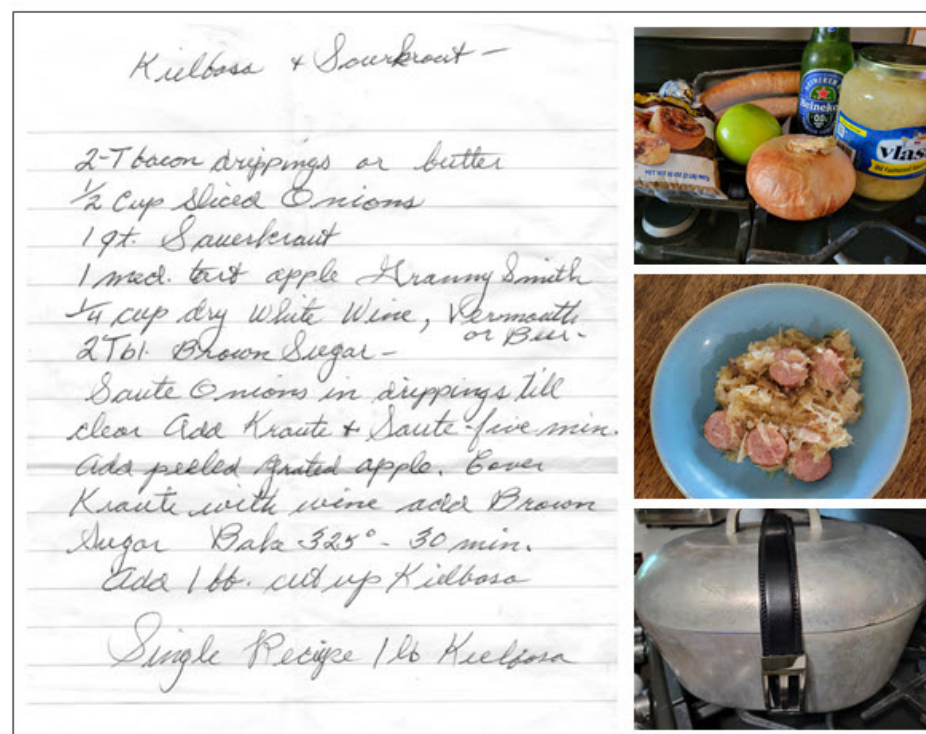 Kielbasa + Sourkrout -
2-T bacon drippings or butter
1/2 Cup Sliced Onions
1 qt. Sauerkraut
1 med. tart apple Granny Smith
1/4 cup dry White Wine, Vermouth
or Beer-
2 Tbl. Brown Sugar -
Saute Onions in drippings till
clear Add Kraute + Saute - five min.
Add peeled grated apple. Cover
Kraute with wine add Brown
Sugar Bake 325° - 30 min.
Add 1 lb. cut up Kielbasa
Single Recipe 1 lb Kielbasa
Heineken
0.0
vlas
Old Fashioned